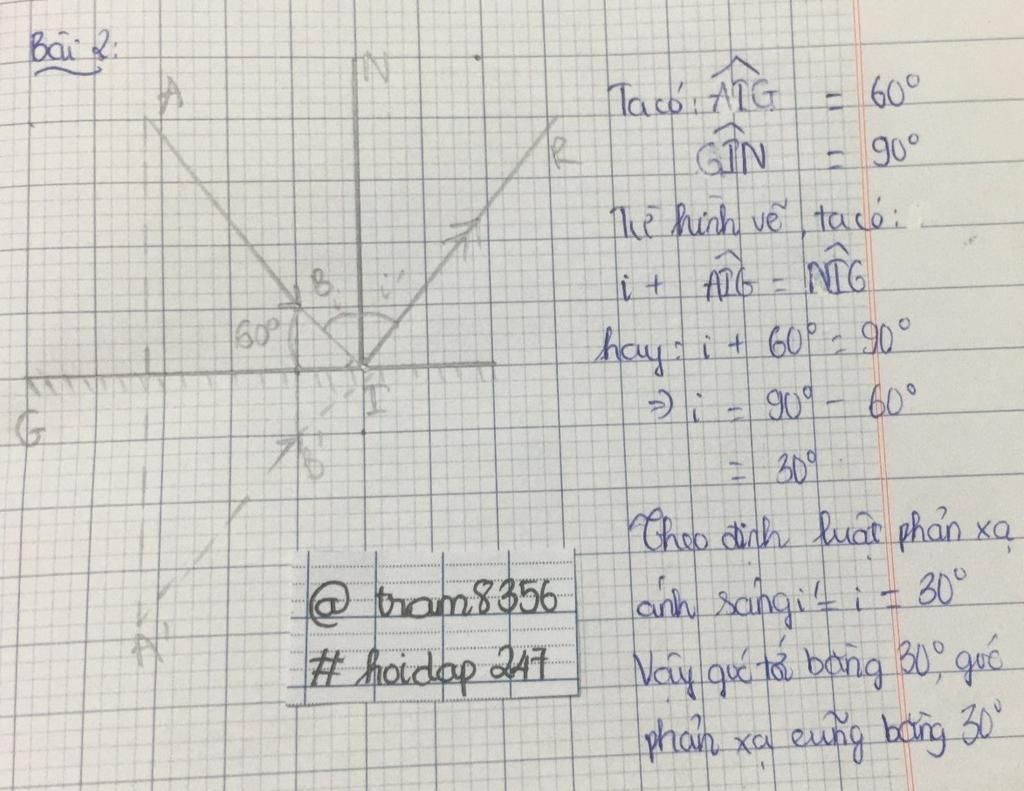 Bài 2:
A
N
R
B
i'
60°
I
G
B'
A'
Ta có: AIG = 60°
GIN = 90°
Từ hình vẽ, ta có:
i + AIG = NIG
hay: i + 60° = 90°
⇒ i = 90° - 60°
= 30°
Theo định luật phản xạ
ánh sáng i' = i = 30°
Vậy góc tới bằng 30°, góc
phản xạ cũng bằng 30°
@ tram8356
# hoidap 247